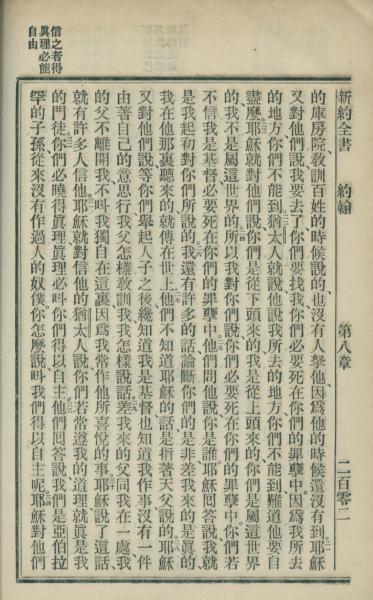 新約全書 約翰 第八章 二百零二
的庫房院、教訓百姓的時候說的、也沒有人拏他、因爲他的時候還沒有到、耶穌
又對他們說、我要去了、你們要找我、你們必要死在你們的罪孽中、因爲我所去
的地方、你們不能到、猶太人就說、他說我所去的地方、你們不能到、難道他要自
盡麼、耶穌就對他們說、你們是從下頭來的、我是從上頭來的、你們是屬這世界
的、我不是屬這世界的、所以我對你們說、你們必要死在你們的罪孽中、你們若
不信我是基督、必要死在你們的罪孽中、他們問他說、你是誰、耶穌回答說、我就
是我起初對你們所說的、我還有許多的話、論斷你們的是非、差我來的是眞的、
我在他那裏聽來的、就傳在世上、他們不知道耶穌的話、是指著天父說的、耶穌
又對他們說、等你們舉起人子之後、纔知道我是基督、也知道我作事、沒有一件
由著自己的意思行、我父怎樣教訓我、我怎樣說話、差我來的父、同我在一處、我
的父不離開我、不叫我獨自在這裏、因爲我常作他所喜悅的事、耶穌說了這話、
就有許多人信他、耶穌就對信他的猶太人說、你們若常遵我的道理、就眞是我
的門徒、你們必曉得眞理、眞理必叫你們得以自主、他們回答說、我們是亞伯拉
罕的子孫、從來沒有作過人的奴僕、你怎麼說叫我們得以自主呢、耶穌對他們
信之者得
眞理必能
自由